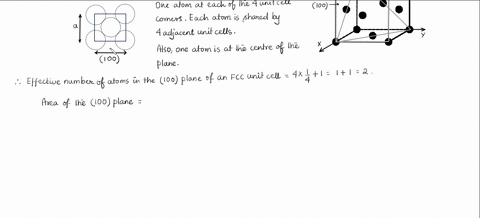 One atom at each of the 4 unit cell
corners. Each atom is shared by
4 adjacent unit cells.
Also, one atom is at the centre of the
plane.
a
(100)
(100)
X
Y
∴ Effective number of atoms in the (100) plane of an FCC unit cell = 4x 1/4 + 1 = 1 + 1 = 2.
Area of the (100) plane =